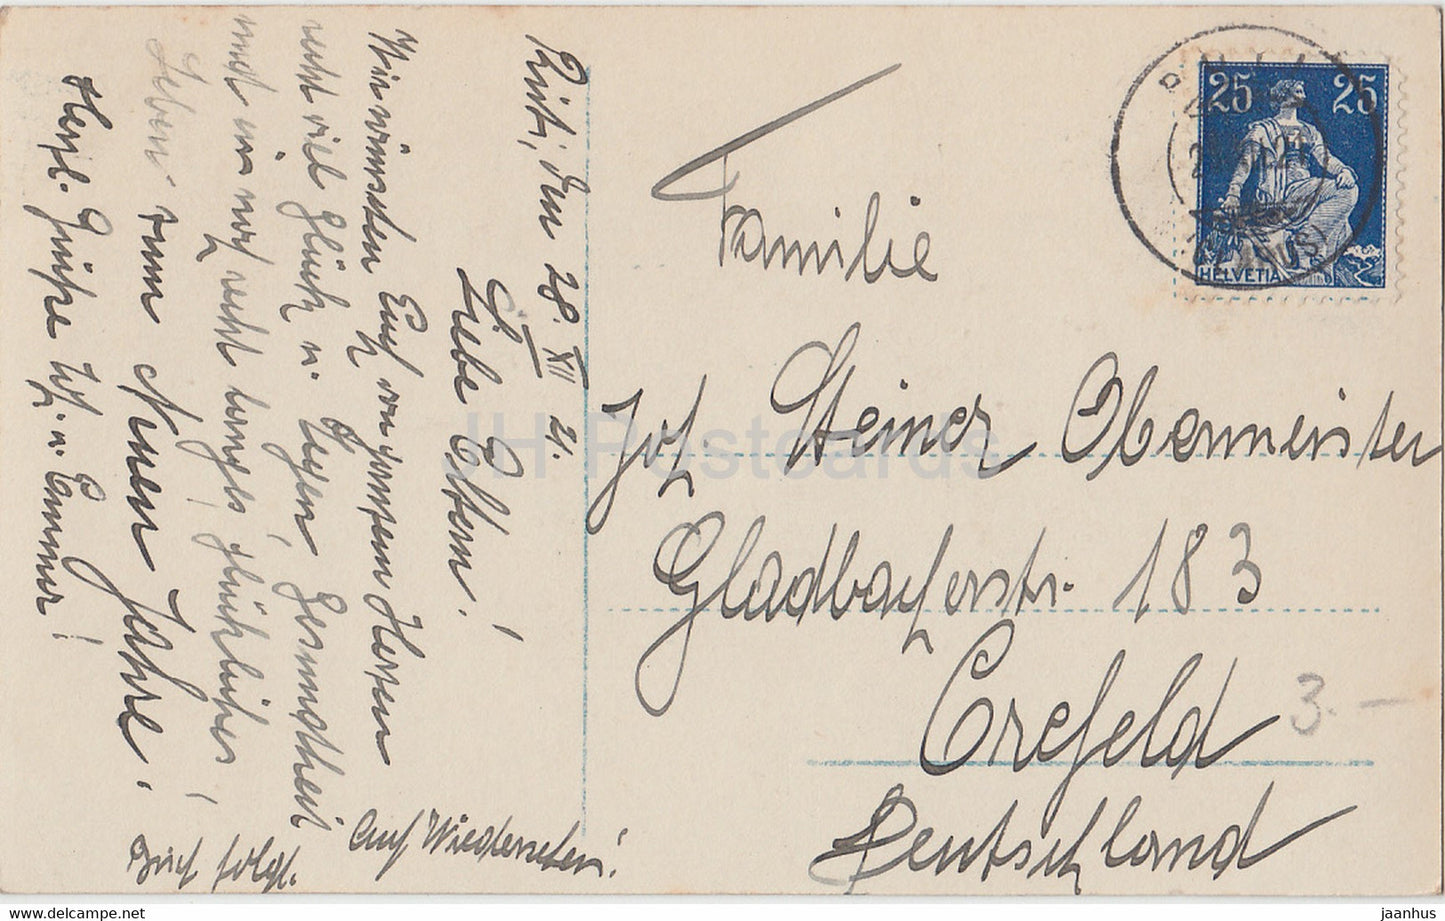 Rüti, den 28. XII 21.
Liebe Eltern!
Wir wünschen Euch von ganzem Herzen
recht viel Glück u. Segen, Gesundheit
und ein noch recht langes, glückliches
Leben zum Neuen Jahre!
Herzl. Grüsse u. Emmer!
Brief folgt.
Auf Wiedersehen!
Familie
Jos. Steiner Obermeister
Gladbacherstr. 183
Crefeld
Deutschland
3.-
25 25
HELVETIA
RÜTI
(GLARUS)
JH Postcards
jaanhus.com